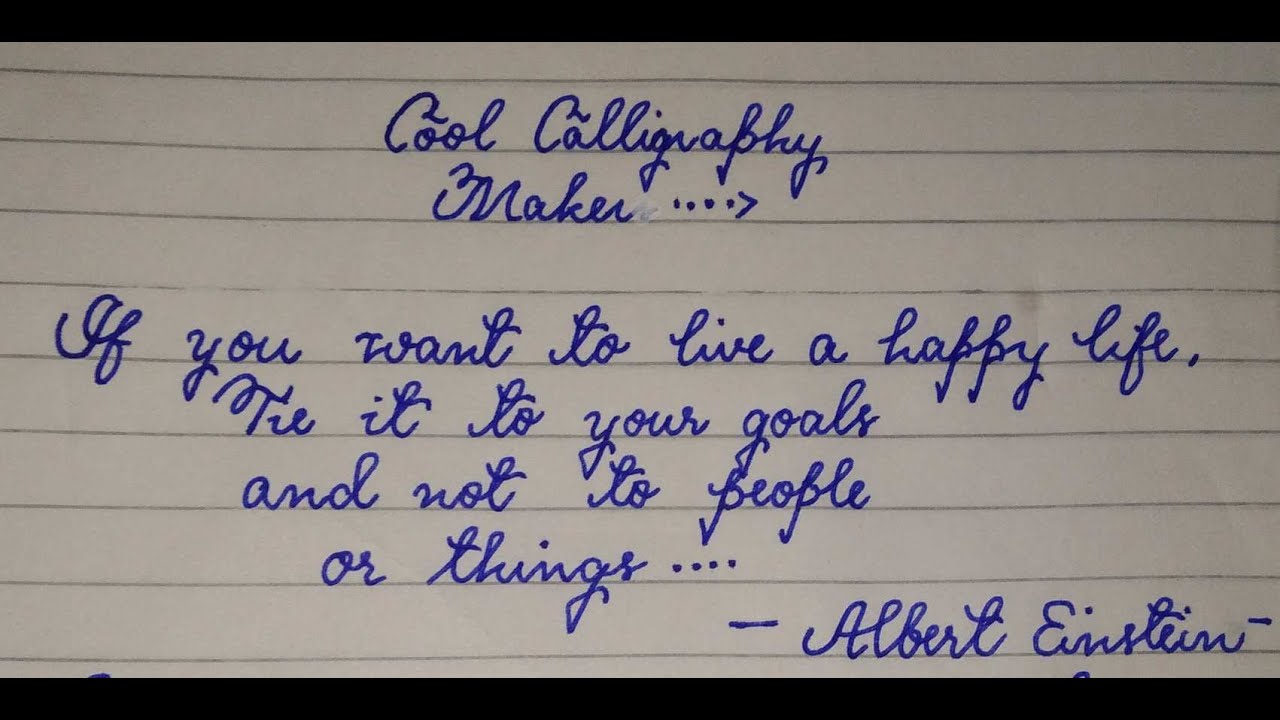 Cool Calligraphy
Maker ....>
If you want to live a happy life,
Tie it to your goals
and not to people
or things ....
- Albert Einstein -